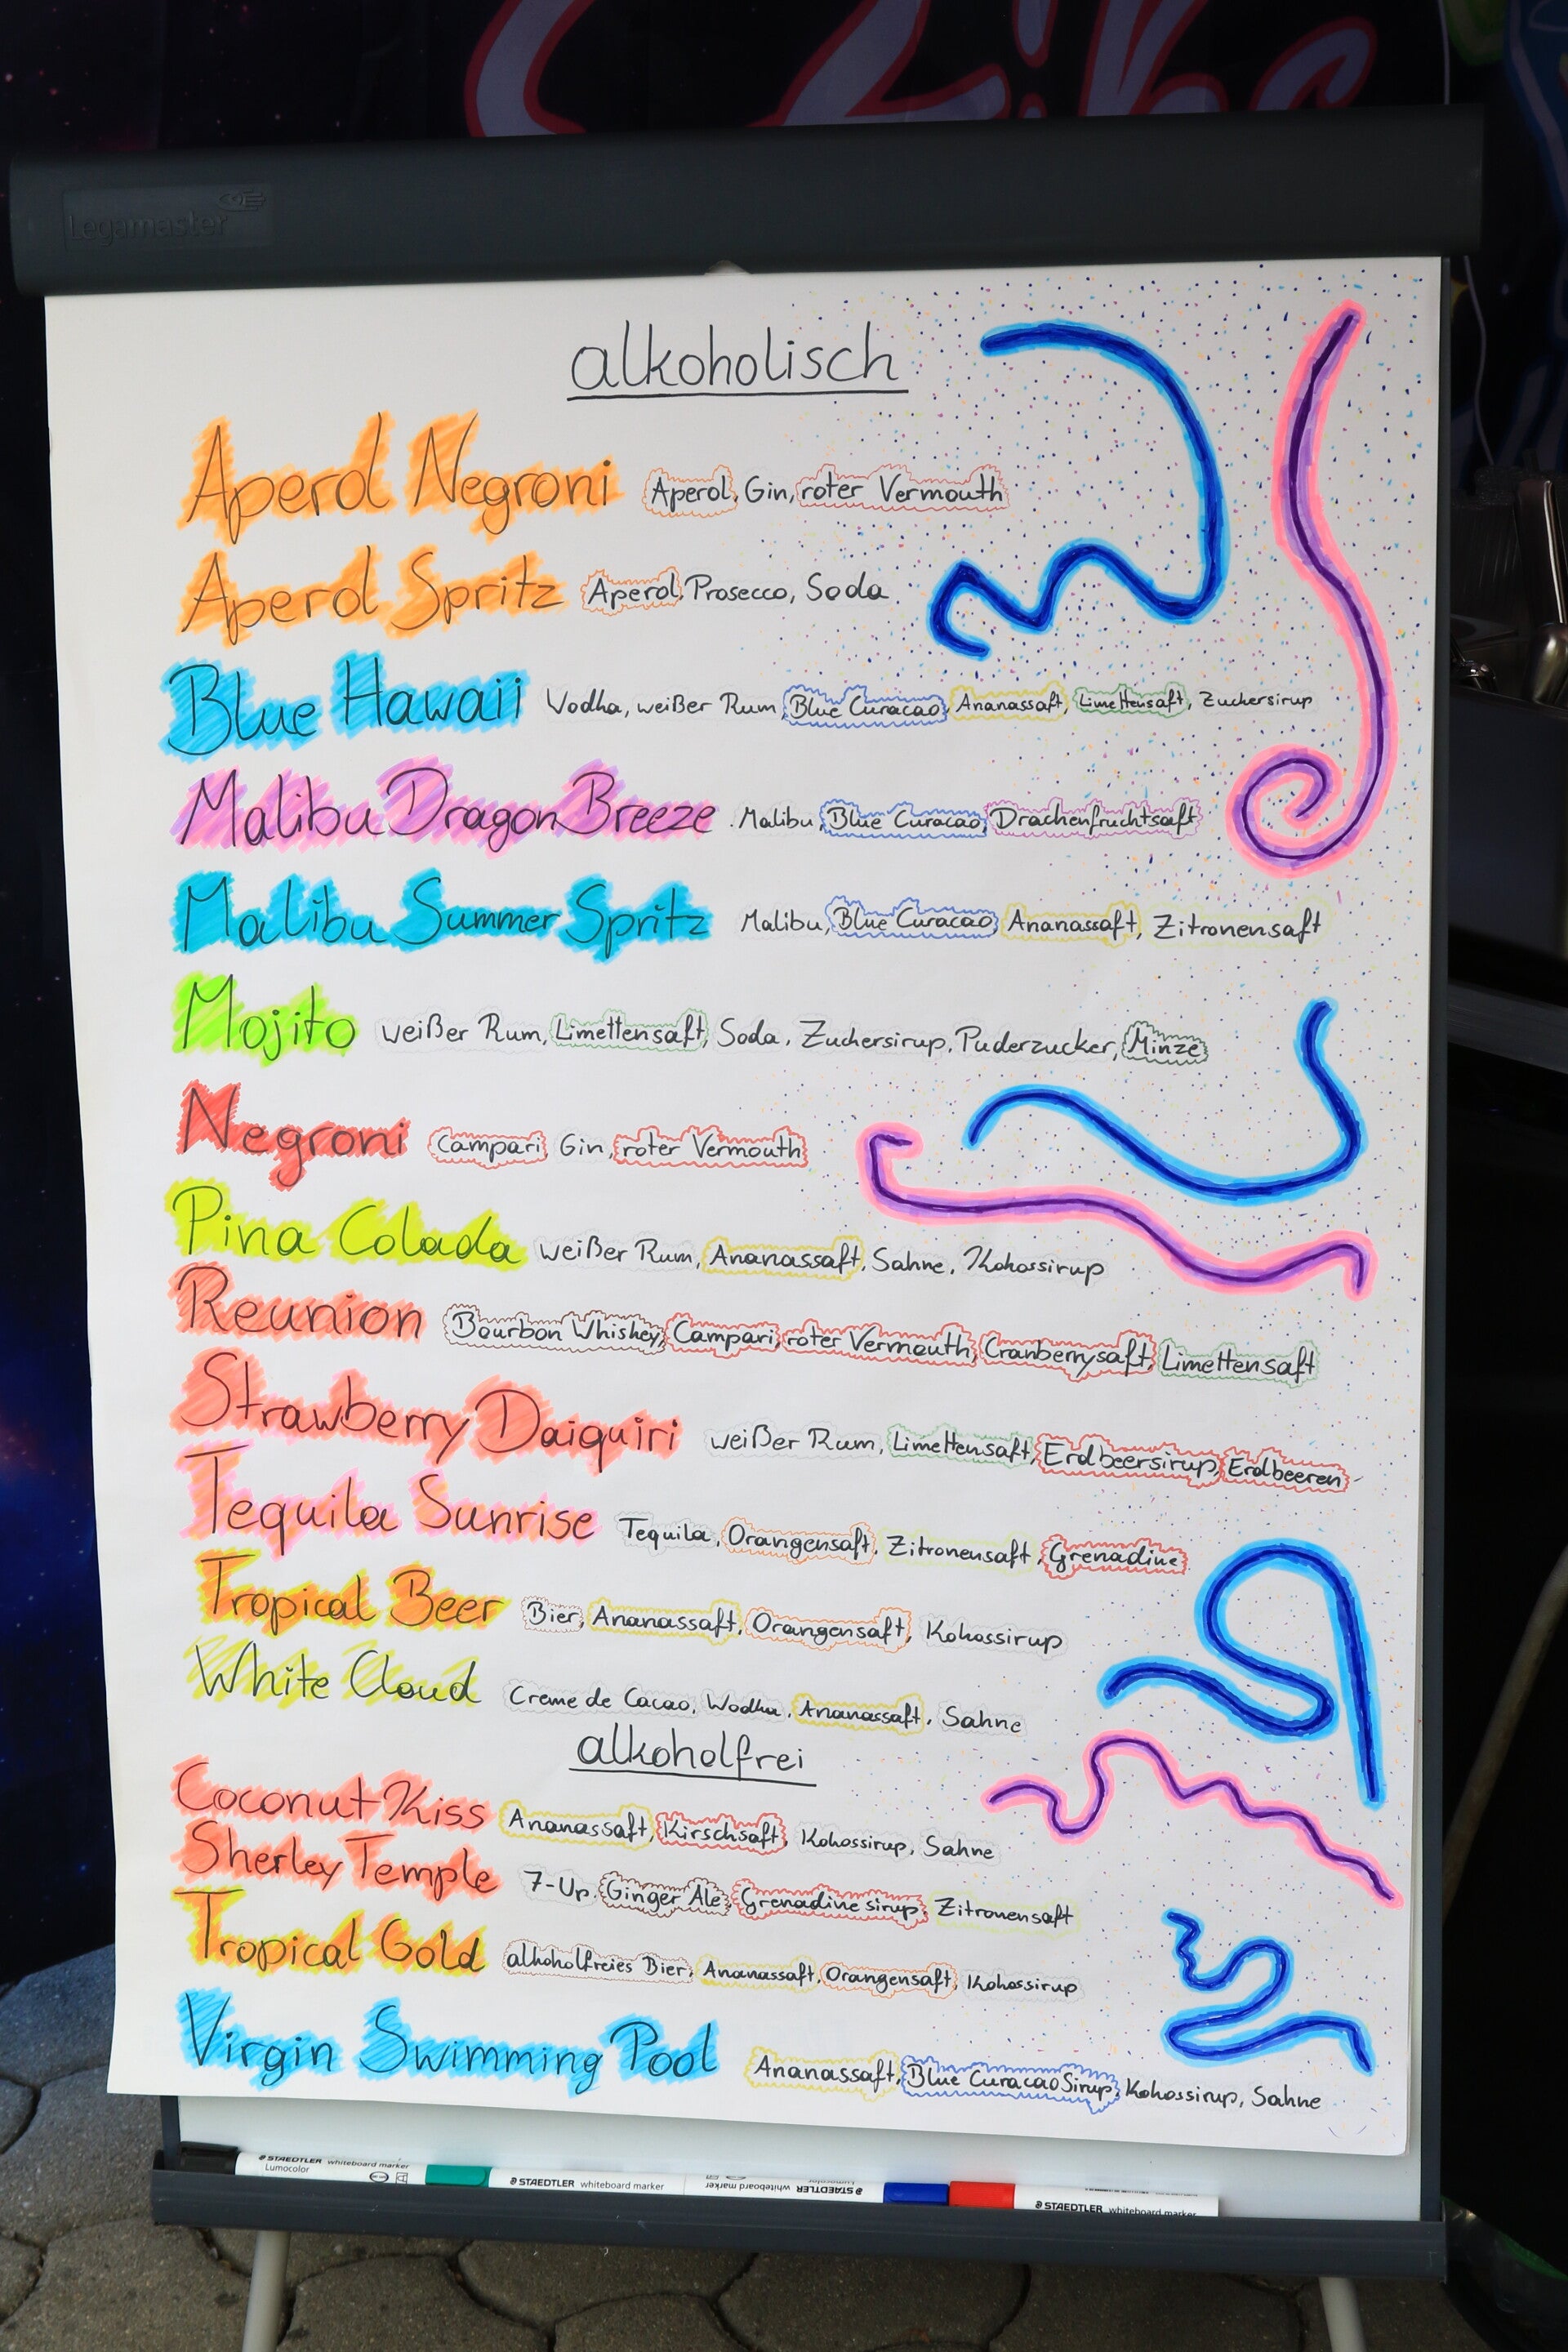 Legamaster
alkoholisch
Aperol Negroni Aperol, Gin, roter Vermouth
Aperol Spritz Aperol, Prosecco, Soda
Blue Hawaii Vodka, weißer Rum, Blue Curacao, Ananassaft, Limettensaft, Zuckersirup
Malibu Dragon Breeze Malibu, Blue Curacao, Drachenfruchtsaft
Malibu Summer Spritz Malibu, Blue Curacao, Ananassaft, Zitronensaft
Mojito weißer Rum, Limettensaft, Soda, Zuckersirup, Puderzucker, Minze
Negroni Campari, Gin, roter Vermouth
Pina Colada weißer Rum, Ananassaft, Sahne, Kokossirup
Reunion Bourbon Whiskey, Campari, roter Vermouth, Cranberrysaft, Limettensaft
Strawberry Daiquiri weißer Rum, Limettensaft, Erdbeersirup, Erdbeeren
Tequila Sunrise Tequila, Orangensaft, Zitronensaft, Grenadine
Tropical Beer Bier, Ananassaft, Orangensaft, Kokossirup
White Cloud Creme de Cacao, Wodka, Ananassaft, Sahne
alkoholfrei
Coconut Kiss Ananassaft, Kirschsaft, Kokossirup, Sahne
Sherley Temple 7-Up, Ginger Ale, Grenadine sirup, Zitronensaft
Tropical Gold alkoholfreies Bier, Ananassaft, Orangensaft, Kokossirup
Virgin Swimming Pool Ananassaft, Blue Curacao Sirup, Kokossirup, Sahne
STAEDTLER whiteboard marker
Lumocolor
STAEDTLER whiteboard marker
STAEDTLER whiteboard marker
Lumocolor
STAEDTLER whiteboard marker